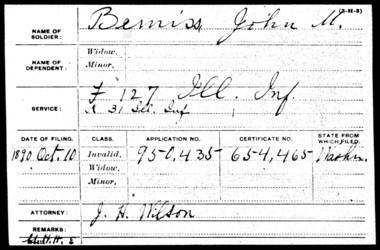 (3-H-3)
NAME OF SOLDIER: Bemiss, John M.
NAME OF DEPENDENT: Widow.
Minor.
SERVICE: F 127 Ill. Inf.
31 Ill. Inf
DATE OF FILING. CLASS. APPLICATION NO. CERTIFICATE NO. STATE FROM WHICH FILED.
1890 Oct. 10 Invalid. 950,435 654,465 Washn.
Widow.
Minor.
ATTORNEY: J. H. Wilson
REMARKS: